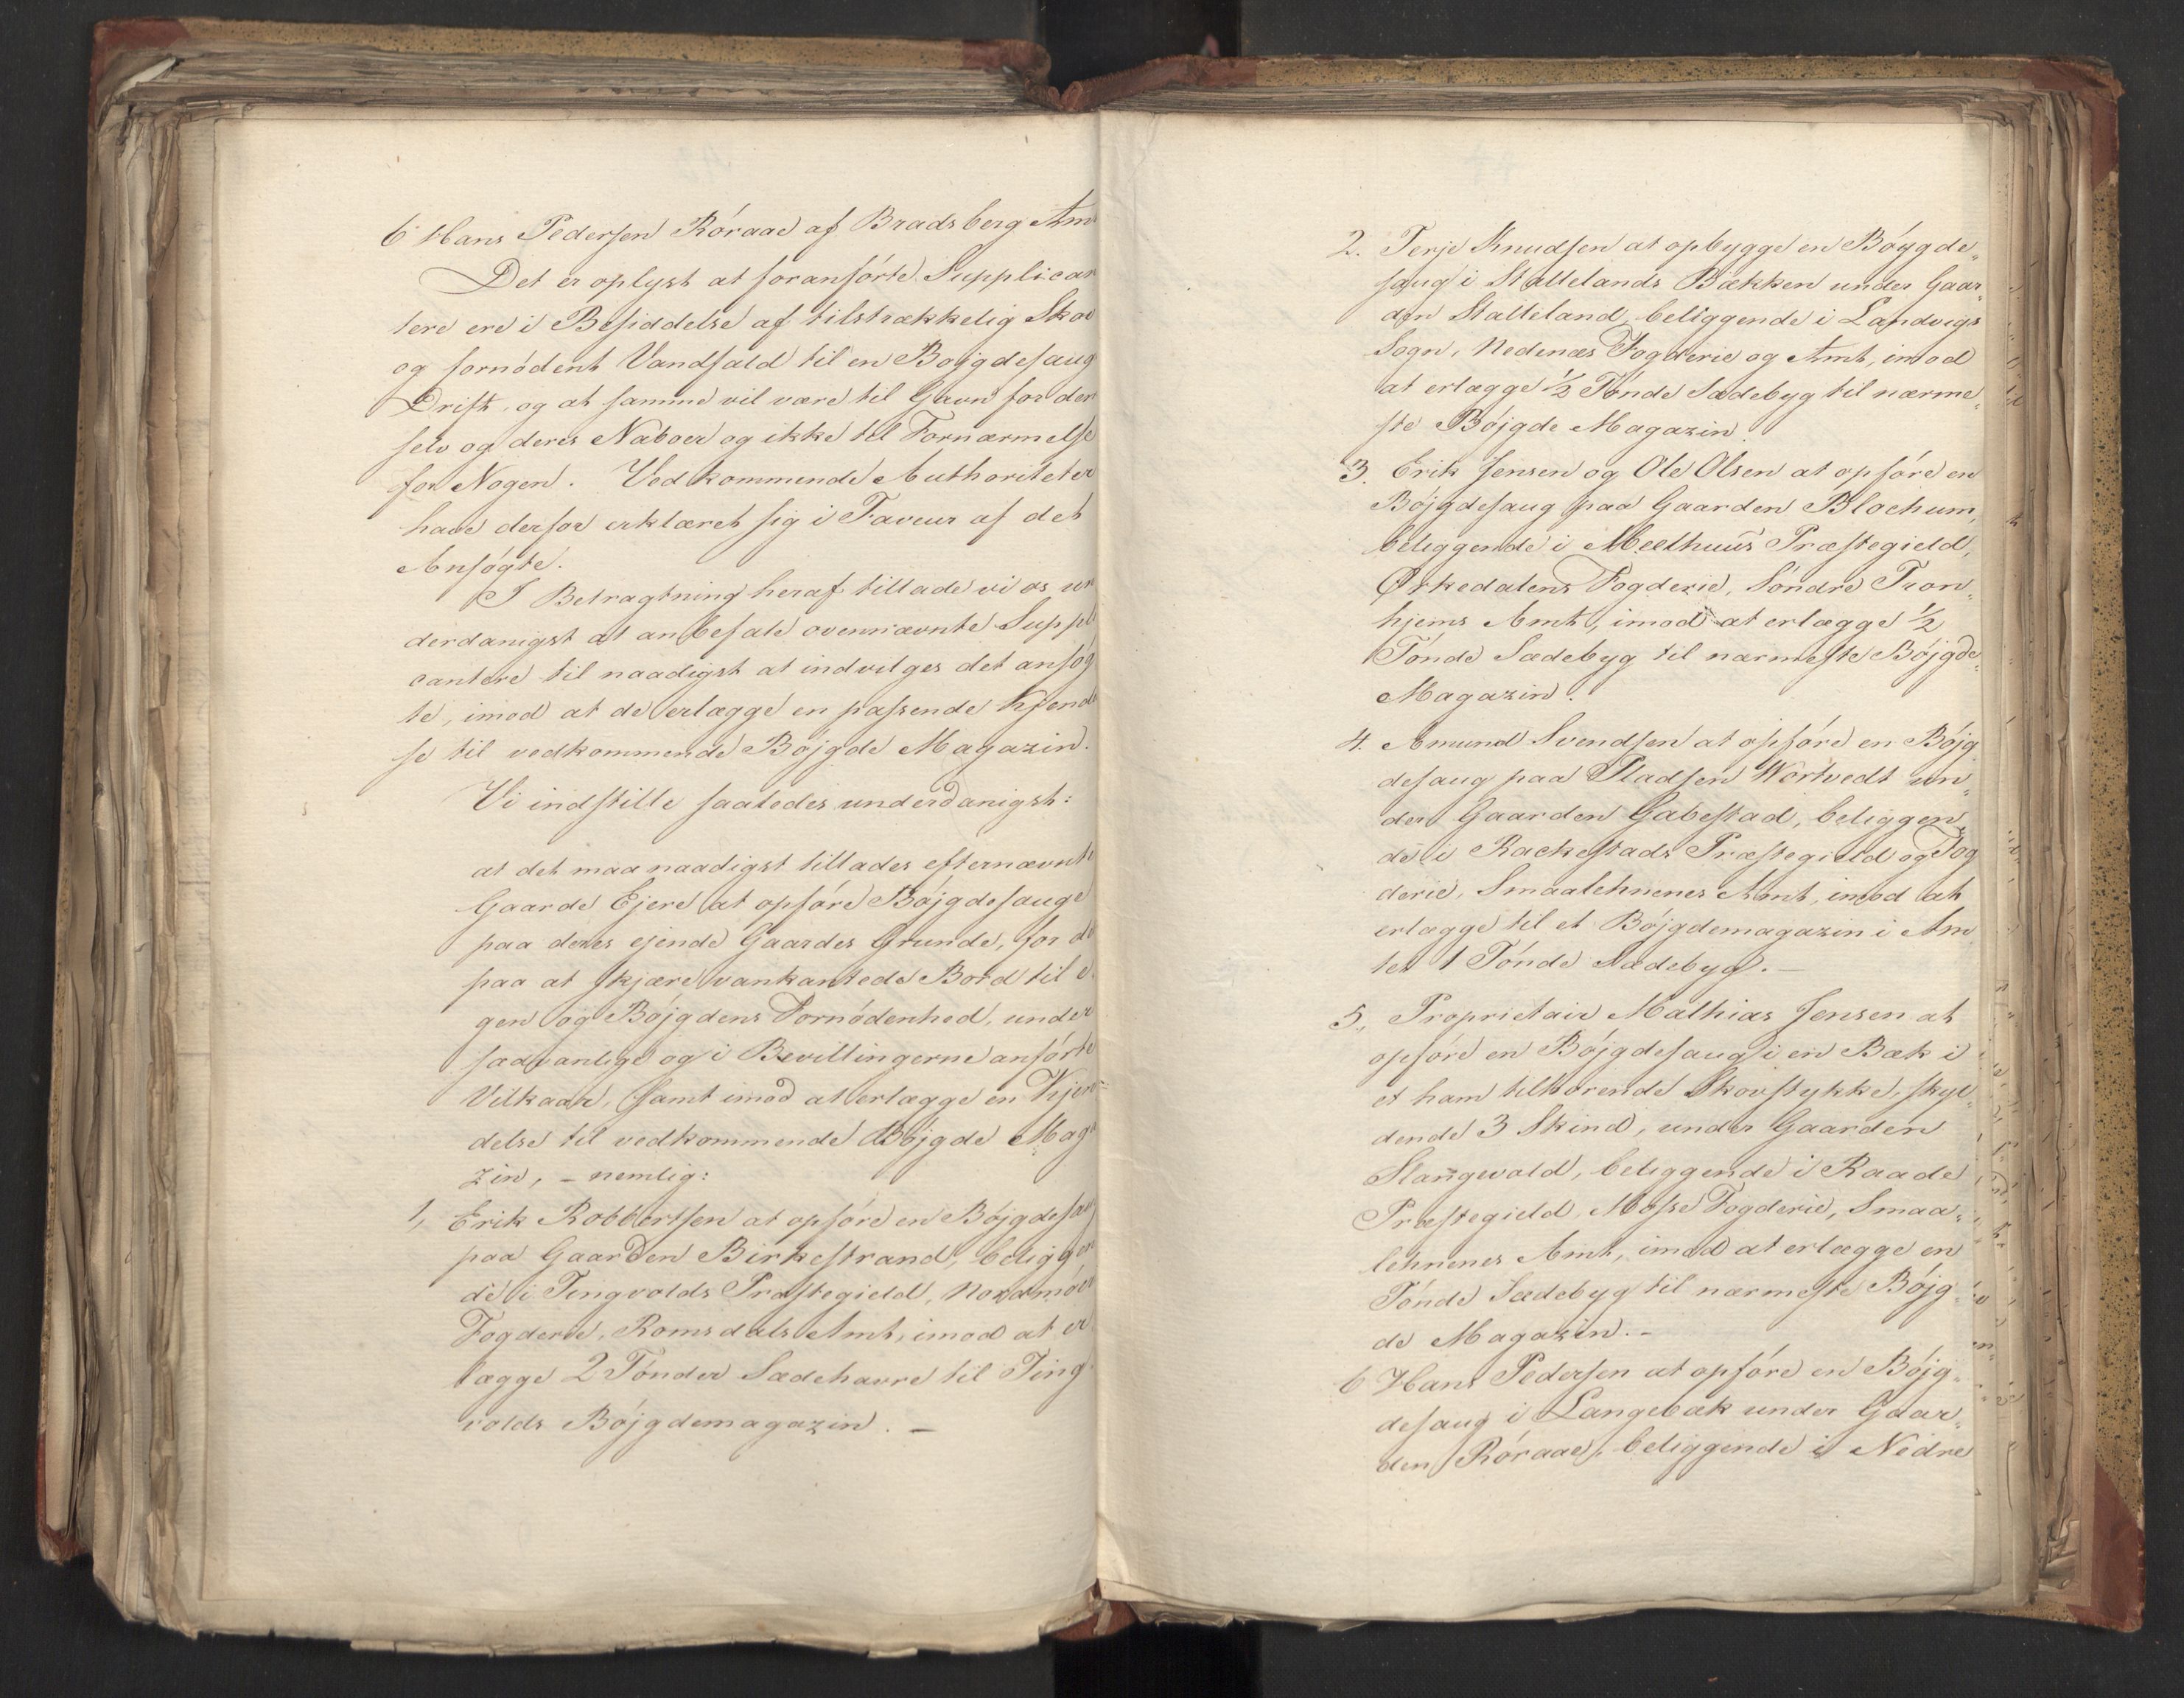 6 Hans Pedersen Röraae af Bradsberg Am
Det er oplyst at foranförte Supplican
tere ere i Besiddelse af tilstrækkelig Skov
og fornödent Vandfald til en Bojgdesaug
Drift, og at samme vil være til Gavn for dem
selv og deres Naboer og ikke til Fornærmelse
for Nogen. Vedkommende Authoriteter
have derfor erklæret sig i Faveur af det
Ansögte.
I Betragtning heraf tillade vi os un
derdanigst at anbefale ovennævnte Suppli
cantere til naadigst at indvilges det ansög
te, imod at de erlægge en passende Kjendel
se til vedkommende Böjgde Magazin.
Vi indstille saaledes underdanigst:
at det maa naadigst tillades efternævnte
Gaarde Ejere at opföre Böjgdesauge
paa deres ejende Gaardes Grunde, for der
paa at skjære vankantede Bord til e
gen og Böjgdens Fornödenhed, under
saadvanlige og i Bevillingerne anförte
Vilkaar, samt imod at erlægge en Kjen
delse til vedkommende Böjgde Maga
zin, - nemlig:
1, Erik Robbertsen at opföre en Böjgdesaug
paa Gaarden Birkestrand, beliggen
de i Tingvolds Præstegield, Nordmöers
Fogderie, Romsdals Amt, imod at er
lægge 2 Tönder Sædehavre til Ting
volds Böjgdemagazin. -
2. Terje Knudsen at opbygge en Böygde
saug i Stallelands Bækken under Gaar
den Stalleland, beliggende i Landvigs
Sogn, Nedenæs Fogderie og Amt, imod
at erlægge ½ Tönde Sædebyg til nærme
ste Böjgde Magazin.
3. Erik Jensen og Ole Olsen at opföre en
Böjgdesaug paa Gaarden Blochum,
beliggende i Meelhuus Præstegield,
Örkedalens Fogderie, Söndre Tron
hjems Amt, imod at erlægge ½
Tönde Sædebyg til nærmeste Böjgde
Magazin.
4. Amund Svendsen at opföre en Böjg
desaug paa Pladsen Wortvedt un
der Gaarden Gabestad, beliggen
de i Rackestads Præstegield og Fog
derie, Smaalehnenes Amt, imod at
erlægge til et Böjgdemagazin i Am
tet 1 Tönde Sædebyg. -
5, Proprietair Mathias Jensen at
opföre en Böjgdesaug i en Bæk i
et ham tilhörende Skovstykke, skyl
dende 3 Skind, under Gaarden
Slangsvold, beliggende i Raade
Præstegield, Mosse Fogderie, Smaa
lehnenes Amt, imod at erlægge en
Tönde Sædebyg til nærmeste Böjg
de Magazin. -
6 Hans Pedersen at opföre en Böjg
desaug i Langebæk under Gaar
den Röraae, beliggende i Nedre